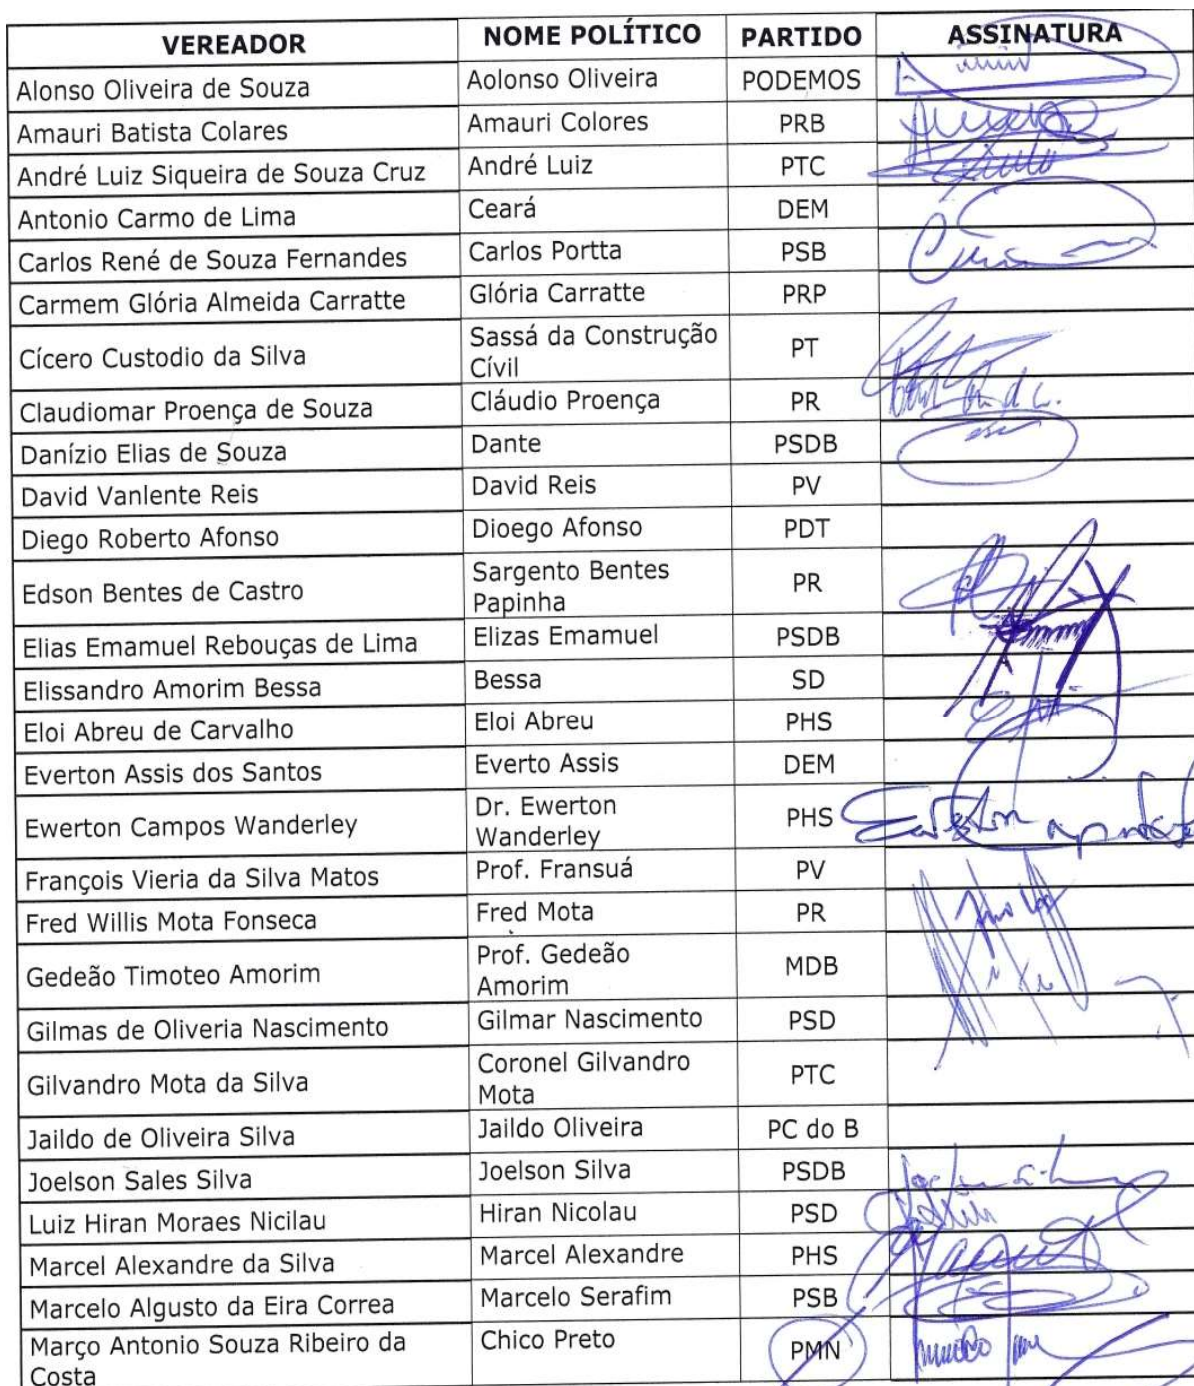 VEREADOR NOME POLÍTICO PARTIDO ASSINATURA
Alonso Oliveira de Souza Aolonso Oliveira PODEMOS
Amauri Batista Colares Amauri Colores PRB
André Luiz Siqueira de Souza Cruz André Luiz PTC
Antonio Carmo de Lima Ceará DEM
Carlos René de Souza Fernandes Carlos Portta PSB
Carmem Glória Almeida Carratte Glória Carratte PRP
Cícero Custodio da Silva Sassá da Construção PT
Cívil
Claudiomar Proença de Souza Cláudio Proença PR
Danízio Elias de Souza Dante PSDB
David Vanlente Reis David Reis PV
Diego Roberto Afonso Dioego Afonso PDT
Edson Bentes de Castro Sargento Bentes PR
Papinha
Elias Emamuel Rebouças de Lima Elizas Emamuel PSDB
Elissandro Amorim Bessa Bessa SD
Eloi Abreu de Carvalho Eloi Abreu PHS
Everton Assis dos Santos Everto Assis DEM
Ewerton Campos Wanderley Dr. Ewerton PHS
Wanderley
François Vieria da Silva Matos Prof. Fransuá PV
Fred Willis Mota Fonseca Fred Mota PR
Gedeão Timoteo Amorim Prof. Gedeão MDB
Amorim
Gilmas de Oliveria Nascimento Gilmar Nascimento PSD
Gilvandro Mota da Silva Coronel Gilvandro PTC
Mota
Jaildo de Oliveira Silva Jaildo Oliveira PC do B
Joelson Sales Silva Joelson Silva PSDB
Luiz Hiran Moraes Nicilau Hiran Nicolau PSD
Marcel Alexandre da Silva Marcel Alexandre PHS
Marcelo Algusto da Eira Correa Marcelo Serafim PSB
Março Antonio Souza Ribeiro da Chico Preto PMN
Costa